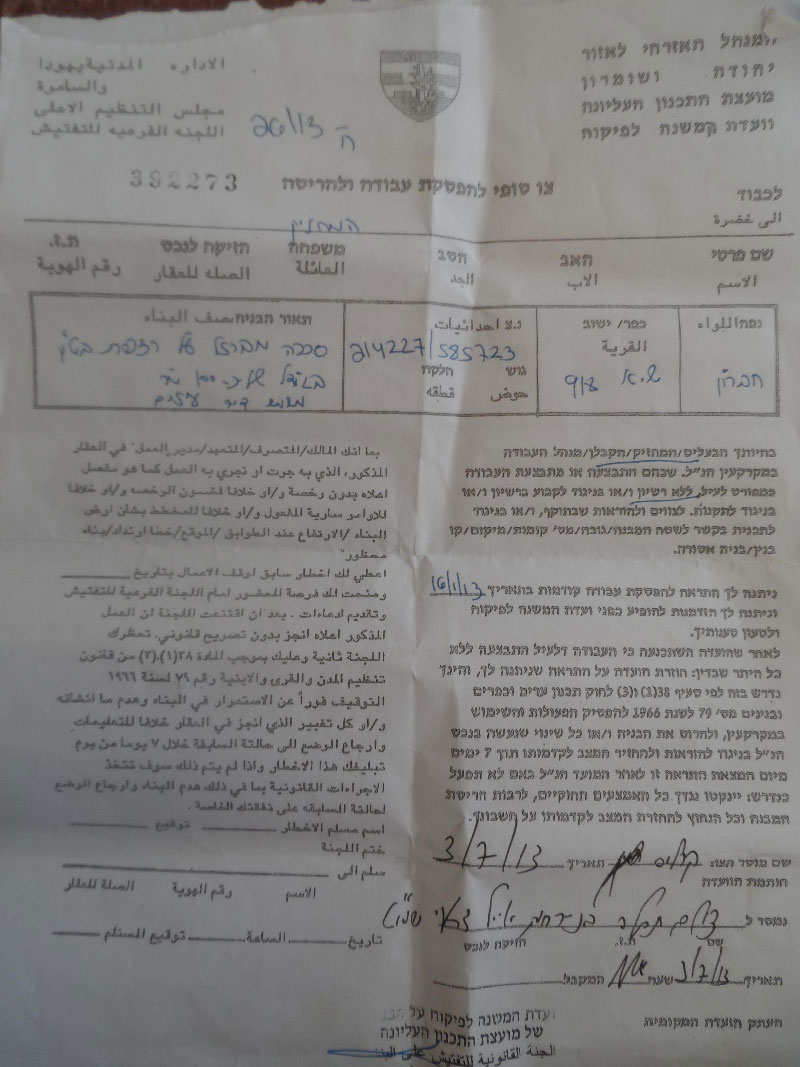 המנהל האזרחי לאזור
יהודה ושומרון
מועצת התכנון העליונה
וועדת המשנה לפיקוח
الاداره المدنية يهودا
والسامرة
مجلس التنظيم الاعلى
اللجنه الفرعيه للتفتيش
ה 26/13
צו סופי להפסקת עבודה ולהריסה
392273
לכבוד
الى حضرة
המחזיק
שם פרטי האב הסב משפחה הזיקה לנכס ת.ז.
الاسم الاب الجد العائلة الصله للعقار رقم الهوية
נפה/اللواء
חברון
כפר/ ישוב
القرية
נ.צ احداثيات
214227/585723
גוש חלקה
حوض قطعه
תאור הבניה/وصف البناء
סככה מברזל על רצפת בטון
בהיותך הבעלים/המחזיק/הקבלן/מנהל העבודה
במקרקעין הנ"ל. שבהם התבצעה או מתבצעת העבודה
כמפורט לעיל, ללא רשיון ו/או בניגוד לקבוע ברשיון ו/או
בניגוד לתקנות. לצווים ולהוראות שבתוקף, ו/או בניגוד
לתכנית בקשר לשטח המבנה/גובה/מס' קומות/מיקום/קו
בנין/בניה אסורה.
ניתנה לך התראה להפסקת עבודה קודמות בתאריך 16/1/13
וניתנה לך הזדמנות להופיע בפני ועדת המשנה לפיקוח
ולטעון טענותיך.
לאחר שהועדה השתכנעה כי העבודה דלעיל התבצעה ללא
כל היתר שבדין: חוזרת הועדה על התראה שניתנה לך, והינך
נדרש בזה לפי סעיף 38(1) ו(3) לחוק תכנון ערים וכפרים
ובנינים מס' 79 לשנת 1966 להפסיק הפעולות והשימוש
במקרקעין, ולהרוס את הבניה ו/או כל שינוי שנעשה בנכס
הנ"ל בניגוד להוראות ולהחזיר המצב לקדמותו תוך 7 ימים
מיום המצאת התראה זו לאחר המועד הנ"ל באם לא תפעל
כנדרש: יינקטו נגדך כל האמצעים החוקיים, לרבות הריסת
המבנה וכל הנחוץ להחזרת המצב לקדמותו על חשבונך.
שם מוסר הצו: תאריך 3/7/13
חותמת הוועדה
נמסר ל
שם ת.ז. הזיקה לנכס
תאריך 3/7/13 שעה המקבל
העתק הועדה המקומית
بما انك المالك/المتصرف/المتعهد/مدير العمل" في العقار
المذكور، الذي به جرت او تجري به العمل كما هو مفصل
اعلاه بدون رخصة و/او خلافا لمضمون الرخصه و/او خلافا
للاوامر سارية المفعول و/او خلافا للمخطط بشان ارض
البناء /الارتفاع عند الطوابق /الموقع/خط ارتداد/بناء
محظور"
اعطي لك اخطار سابق لوقف الاعمال بتاريخ
ومنحت لك فرصة للحضور امام اللجنة الفرعية للتفتيش
وتقديم ادعاءات . بعد ان اقتنعت اللجنة ان العمل
المذكور اعلاه انجز بدون تصريح قانوني. تحظرك
اللجنة ثانية وعليك بموجب المادة ٣٨(١).(٣) من قانون
تنظيم المدن والقرى والابنية رقم ٧٩ لسنة ١٩٦٦
التوقيف فوراً عن الاستمرار في البناء وهدم ما انشائه
و/او كل تغيير الذي انجز في العقار خلافا للتعليمات
وارجاع الوضع الى حالتة السابقة خلال ٧ يوما من يوم
تبليغك هذا الاخطار واذا لم يتم ذلك سوف تتخذ
الاجراءات القانونية بما في ذلك هدم البناء وارجاع الوضع
لحالتة السابقه على نفقتك الخاصة .
اسم مسلم الاخطار توقيع
ختم اللجنة
سلم الى
الاسم رقم الهوية الصلة للعقار
تاريخ الساعة توقيع المستلم
ועדת המשנה לפיקוח על הבניה
של מועצת התכנון העליונה
الجنة القانونية للتفتيش على البناء